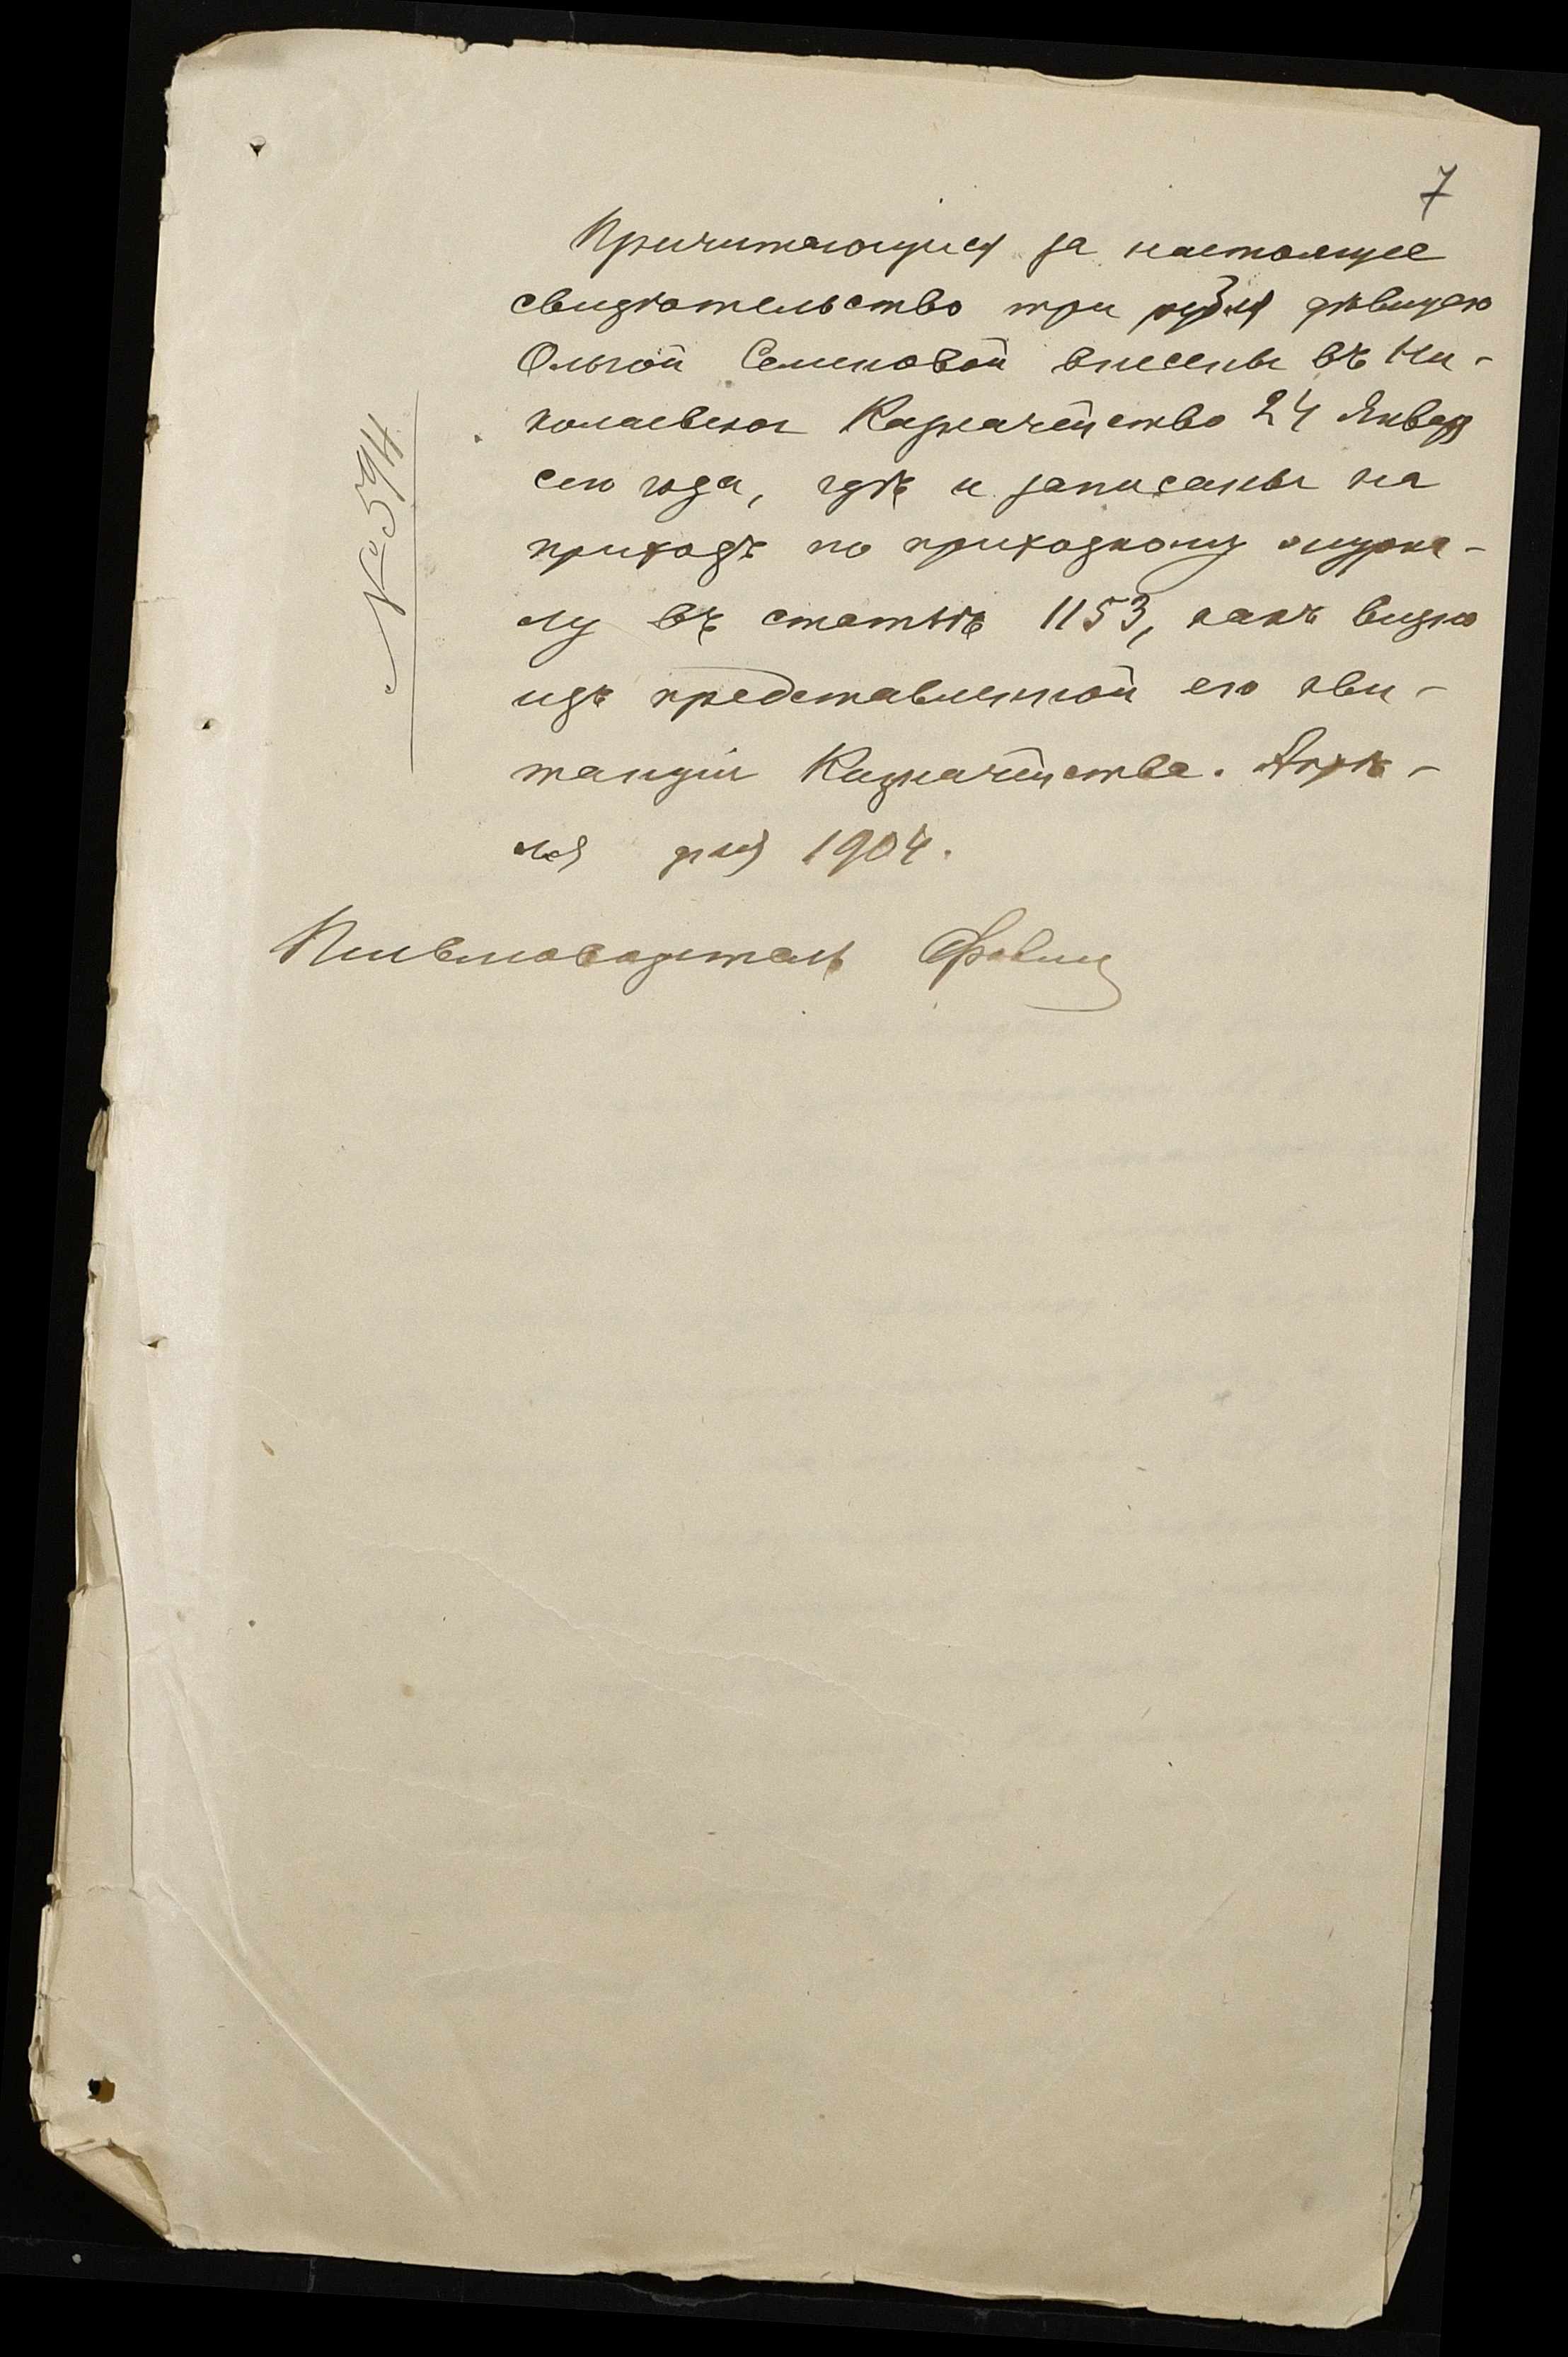 7
Причитающіеся за настоящее
свидѣтельство три рубля дѣвицею
Ольгой Семеновой внесены въ Ни-
колаевское Казначейство 24 Января
сего года, гдѣ и записаны на
приходъ по приходному журна-
лу въ статьѣ 1153, какъ видно
изъ представленной ею кви-
танціи Казначейства. Апрѣ-
ля дня 1904.
Письмоводитель
№ 594